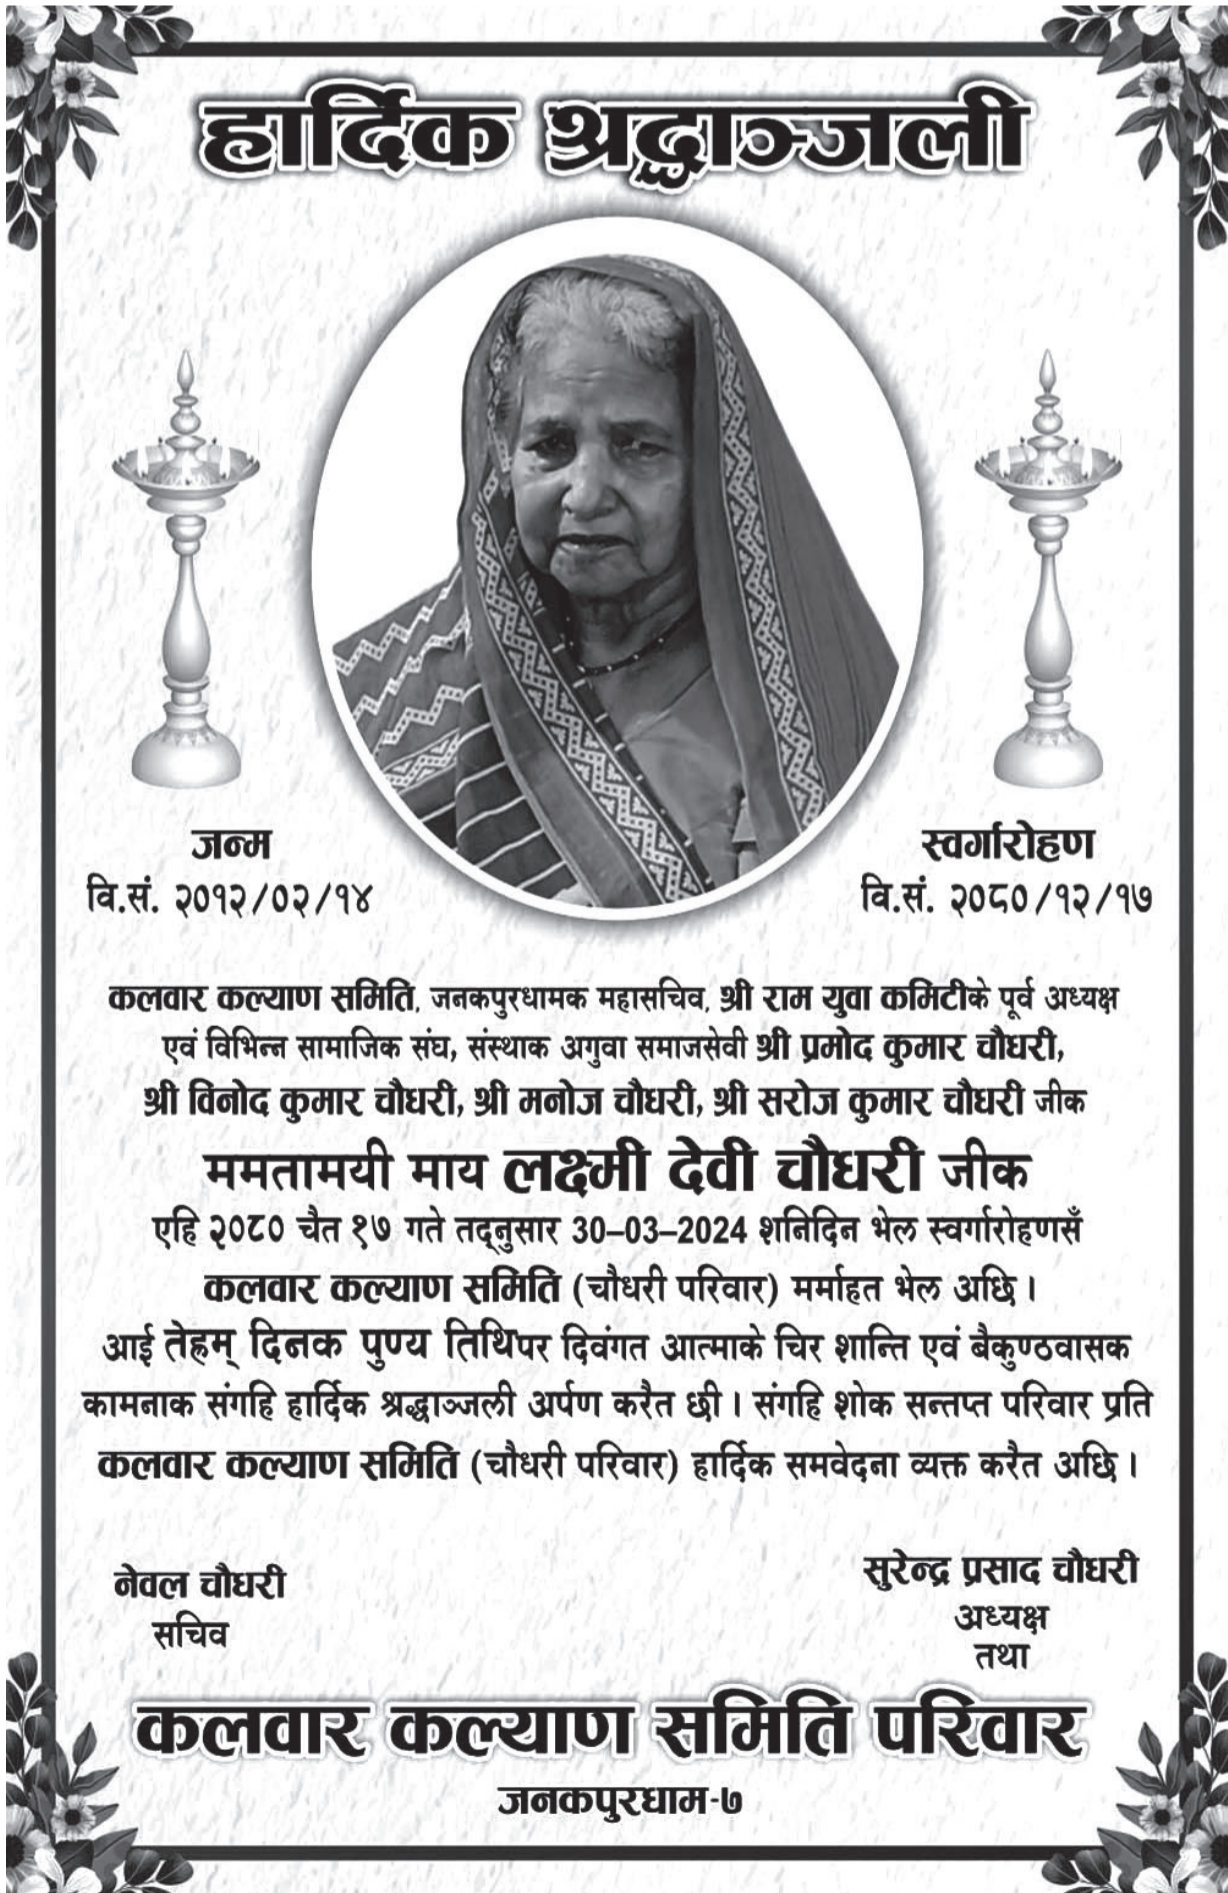 हार्दिक श्रद्धाञ्जली
जन्म
वि.सं. २०१२/०२/१४
स्वर्गारोहण
वि.सं. २०८०/१२/१७
कलवार कल्याण समिति, जनकपुरधामक महासचिव, श्री राम युवा कमिटीके पूर्व अध्यक्ष
एवं विभिन्न सामाजिक संघ, संस्थाक अगुवा समाजसेवी श्री प्रमोद कुमार चौधरी,
श्री विनोद कुमार चौधरी, श्री मनोज चौधरी, श्री सरोज कुमार चौधरी जीक
ममतामयी माय लक्ष्मी देवी चौधरी जीक
एहि २०८० चैत १७ गते तद्नुसार 30-03-2024 शनिदिन भेल स्वर्गारोहणसँ
कलवार कल्याण समिति (चौधरी परिवार) मर्माहत भेल अछि ।
आई तेह्रम् दिनक पुण्य तिथिपर दिवंगत आत्माके चिर शान्ति एवं बैकुण्ठवासक
कामनाक संगहि हार्दिक श्रद्धाञ्जली अर्पण करैत छी । संगहि शोक सन्तप्त परिवार प्रति
कलवार कल्याण समिति (चौधरी परिवार) हार्दिक समवेदना व्यक्त करैत अछि ।
नेवल चौधरी
सचिव
सुरेन्द्र प्रसाद चौधरी
अध्यक्ष
तथा
कलवार कल्याण समिति परिवार
जनकपुरधाम-७